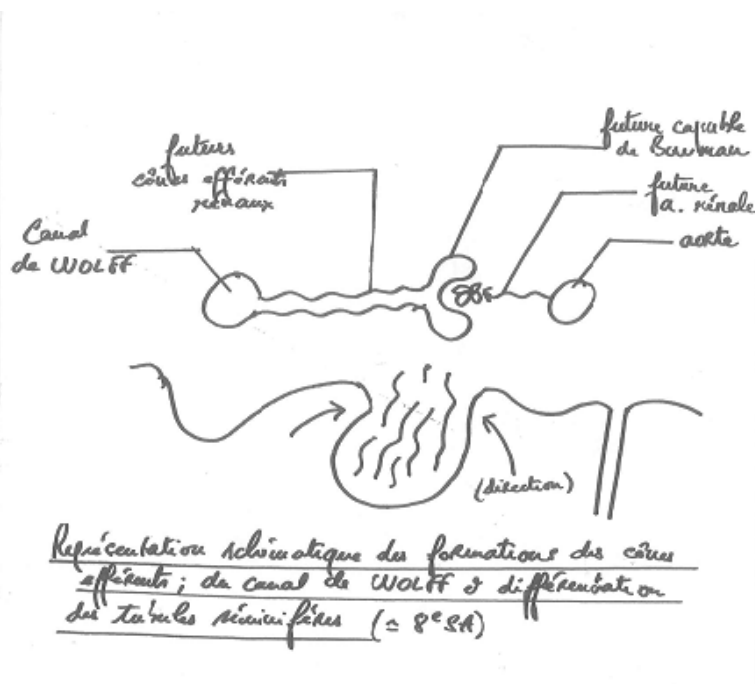 futurs
cônes efférents
rénaux
future capsule
de Bowman
future
a. rénale
aorte
Canal
de WOLFF
(direction)
Représentation schématique des formations des cônes
efférents ; du canal de WOLFF & différenciation
des tubules séminifères (≃ 8e SA)